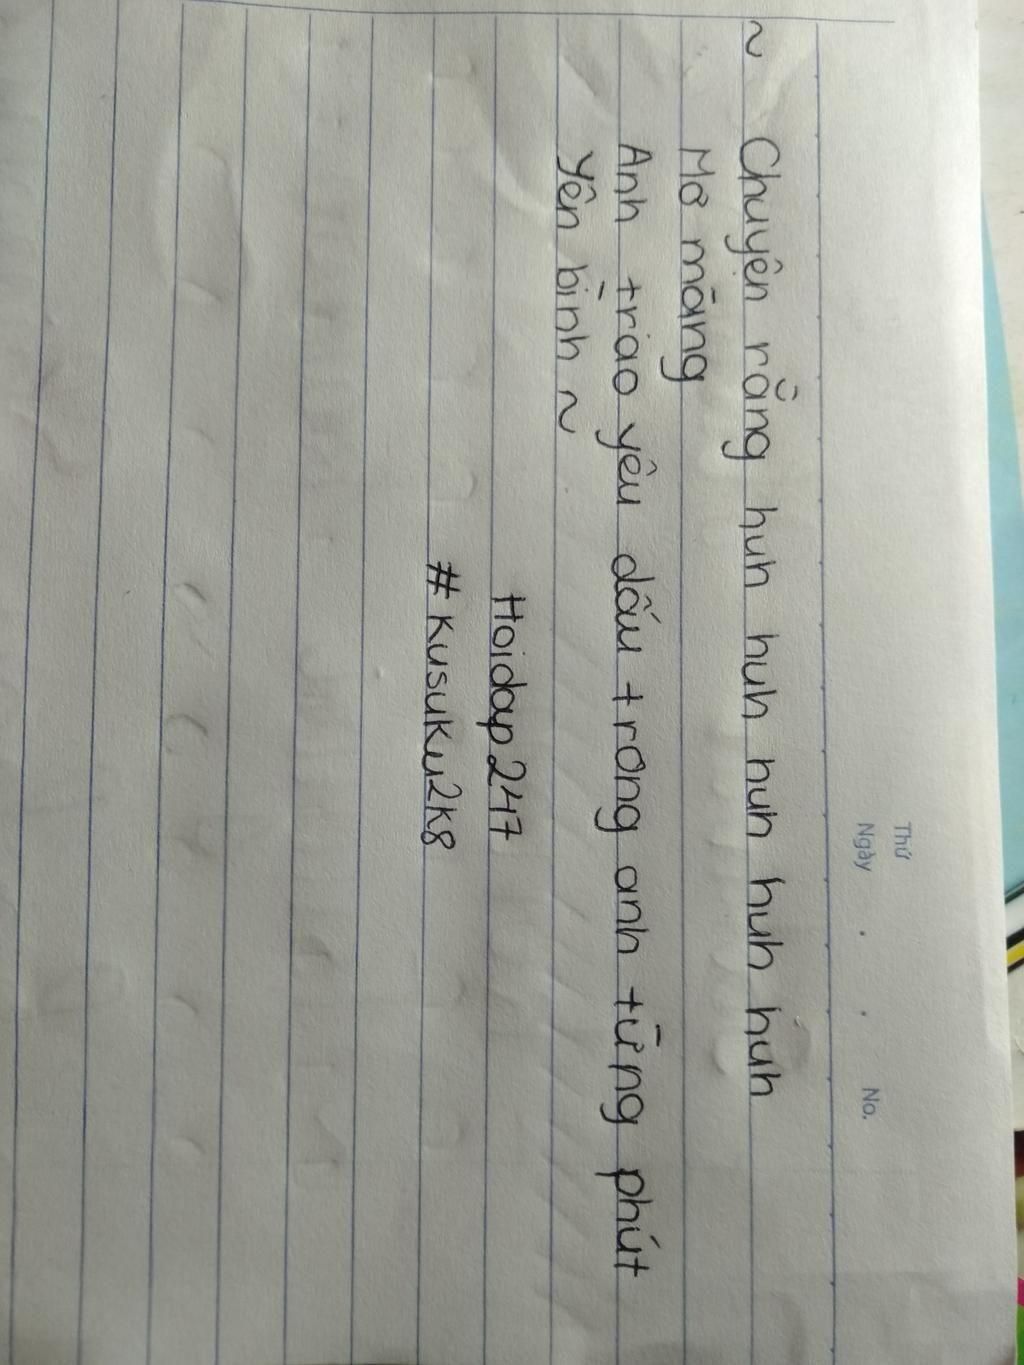 Thứ
Ngày . . No.
~ Chuyện rằng huh huh huh huh huh
Mơ màng
Anh trao yêu dấu trong anh từng phút
Yên bình ~
Hoidap247
#Kusuku2k8